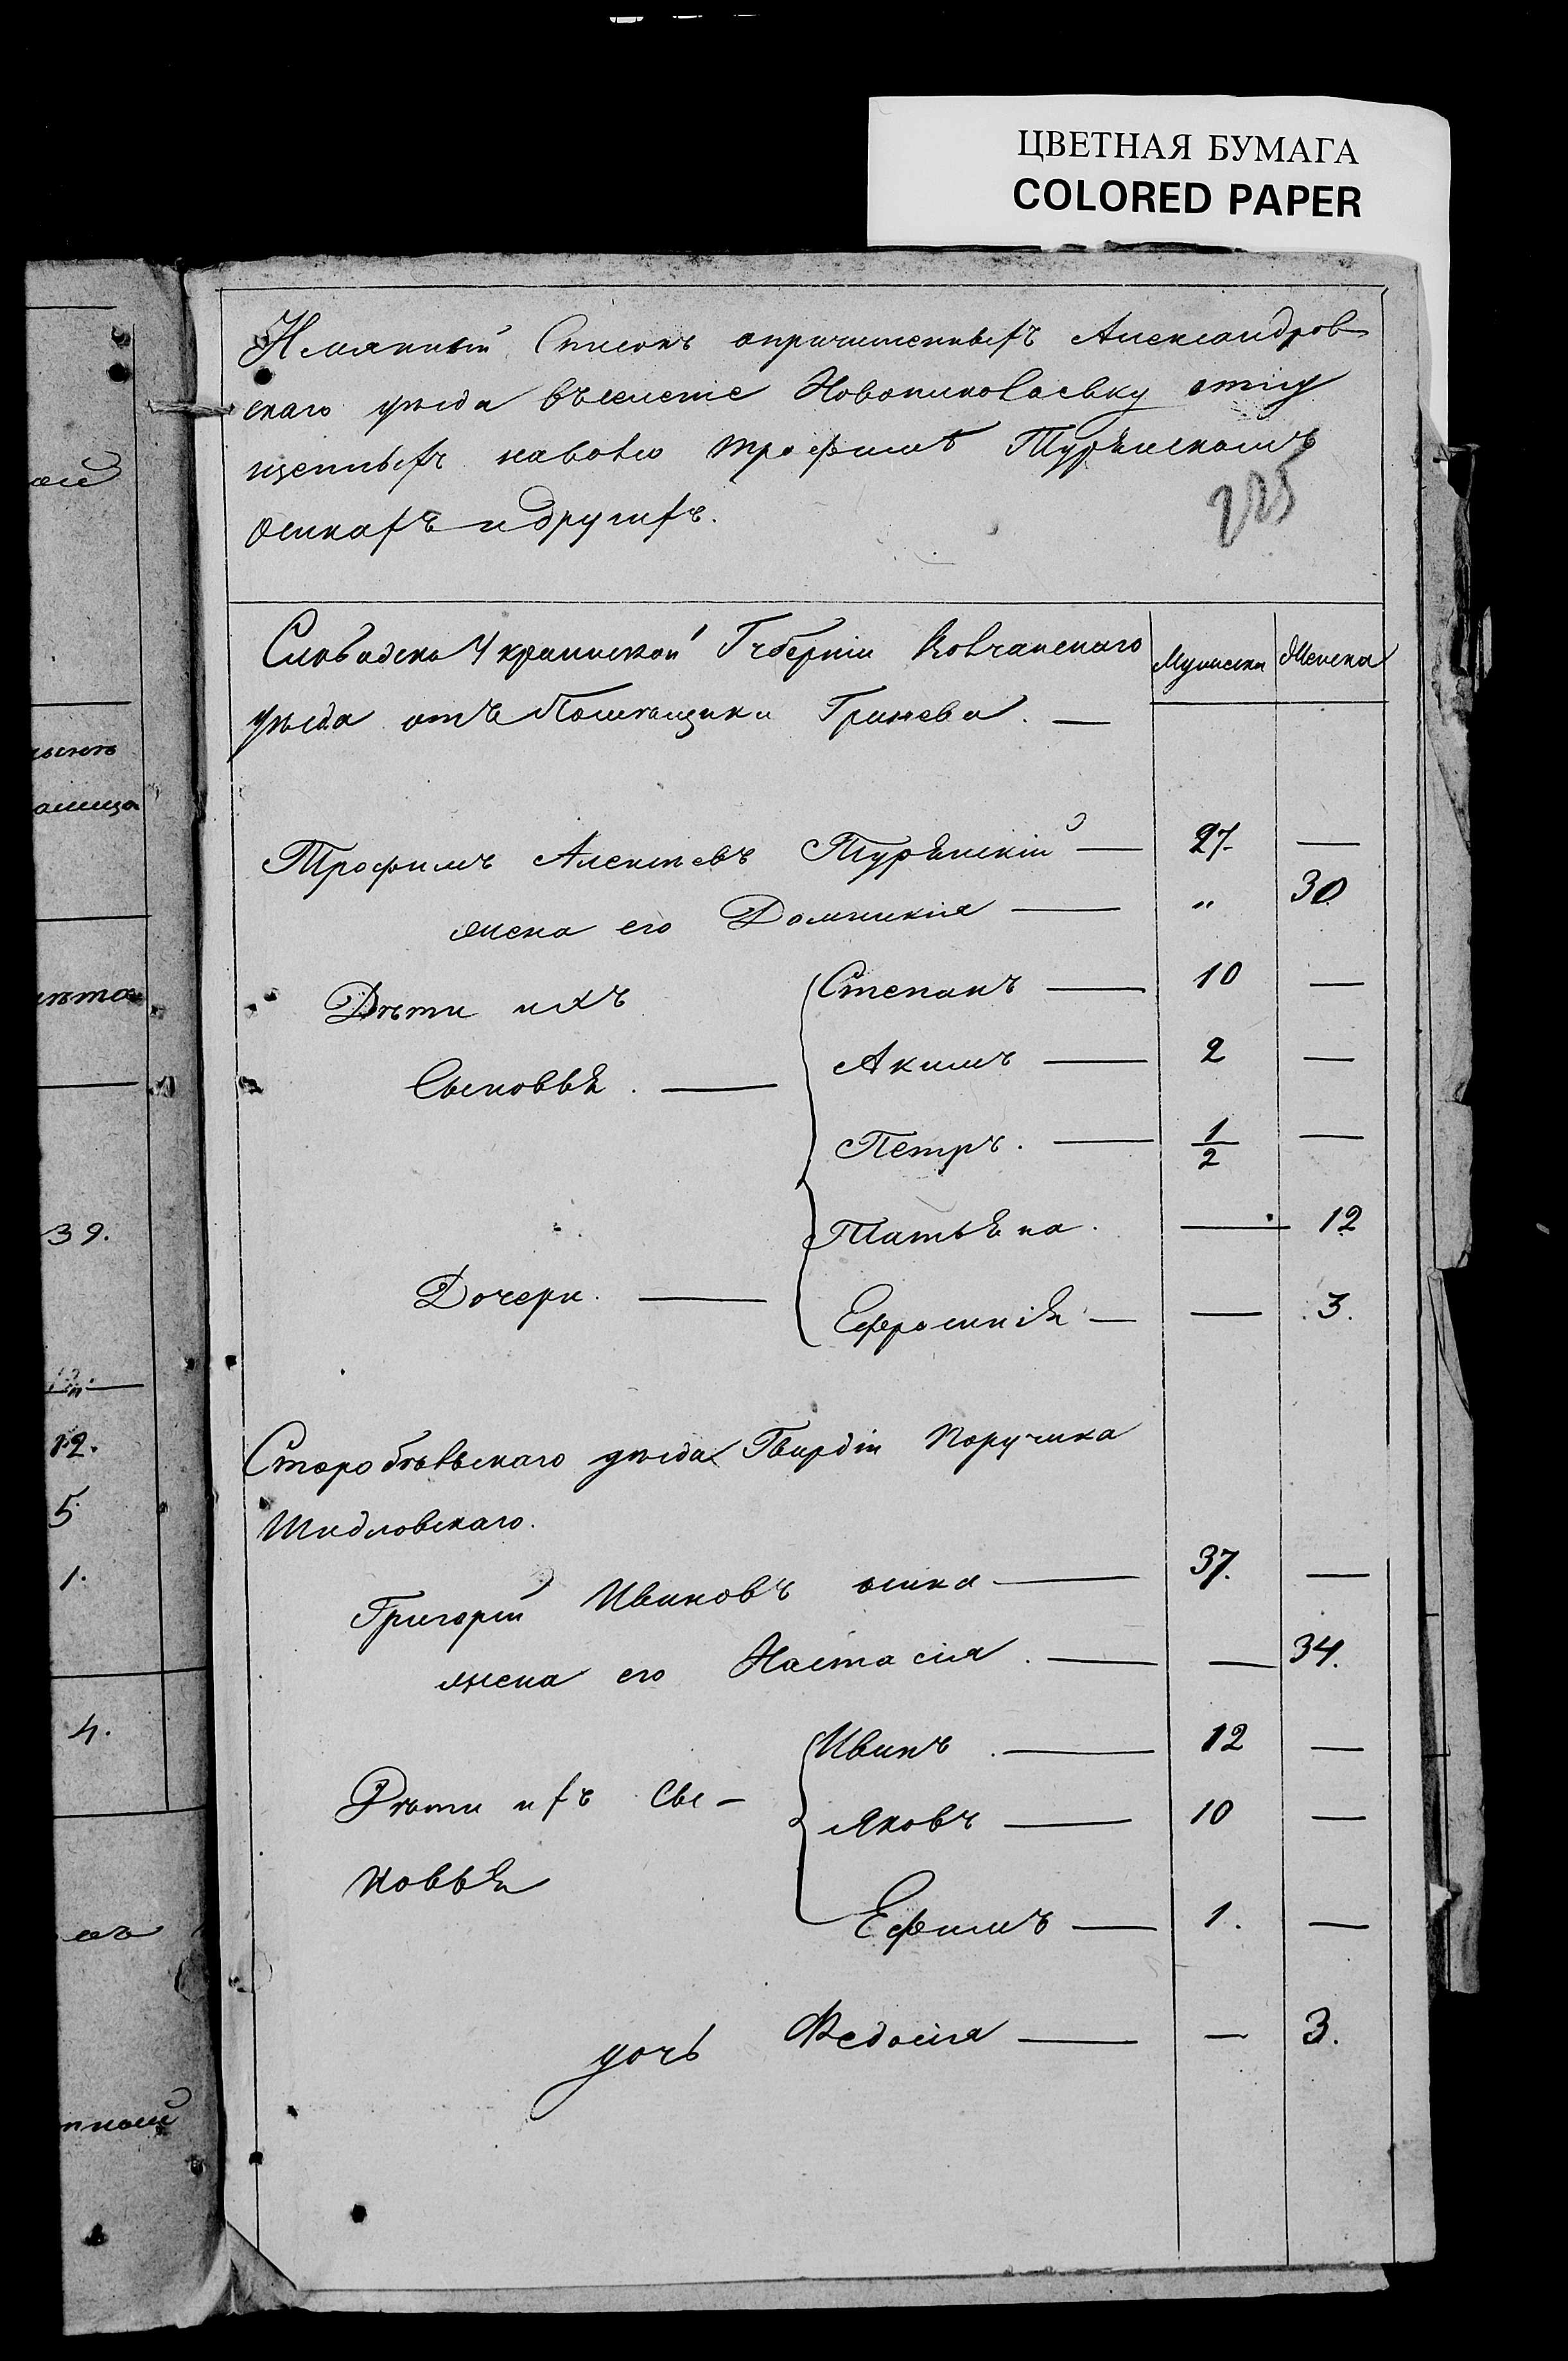 ЦВЕТНАЯ БУМАГА
COLORED PAPER
Имянный Списокъ опричисленныхъ Александров
скаго уѣзда въселеніе Новониколаевку отпу
щенныхъ наволю Трофимѣ Турянскомъ
Осикахъ и другихъ.
225
Слободско Украинской Губерніи Волчанскаго
уѣзда отъ Помѣщика Гринева. —
Мужеска Женска
Трофимъ Алексѣевъ Турянскій — 27. —
жена его Домникія — " 30.
Дѣти ихъ
Степанъ — 10 —
Сыновья. —
Акимъ — 2 —
Петръ. — 1/2 —
Татьяна. — 12
Дочери. —
Ефросинія — — 3.
Старобѣльскаго уѣзда Гвардіи Поручика
Шидловскаго.
Григорій Ивановъ осика — 37. —
жена его Настасія. — — 34.
Иванъ. — 12 —
Дѣти ихъ Сы-
Яковъ — 10 —
новья
Ефимъ — 1. —
дочь Федосія — — 3.
39.
12.
5
1.
4.